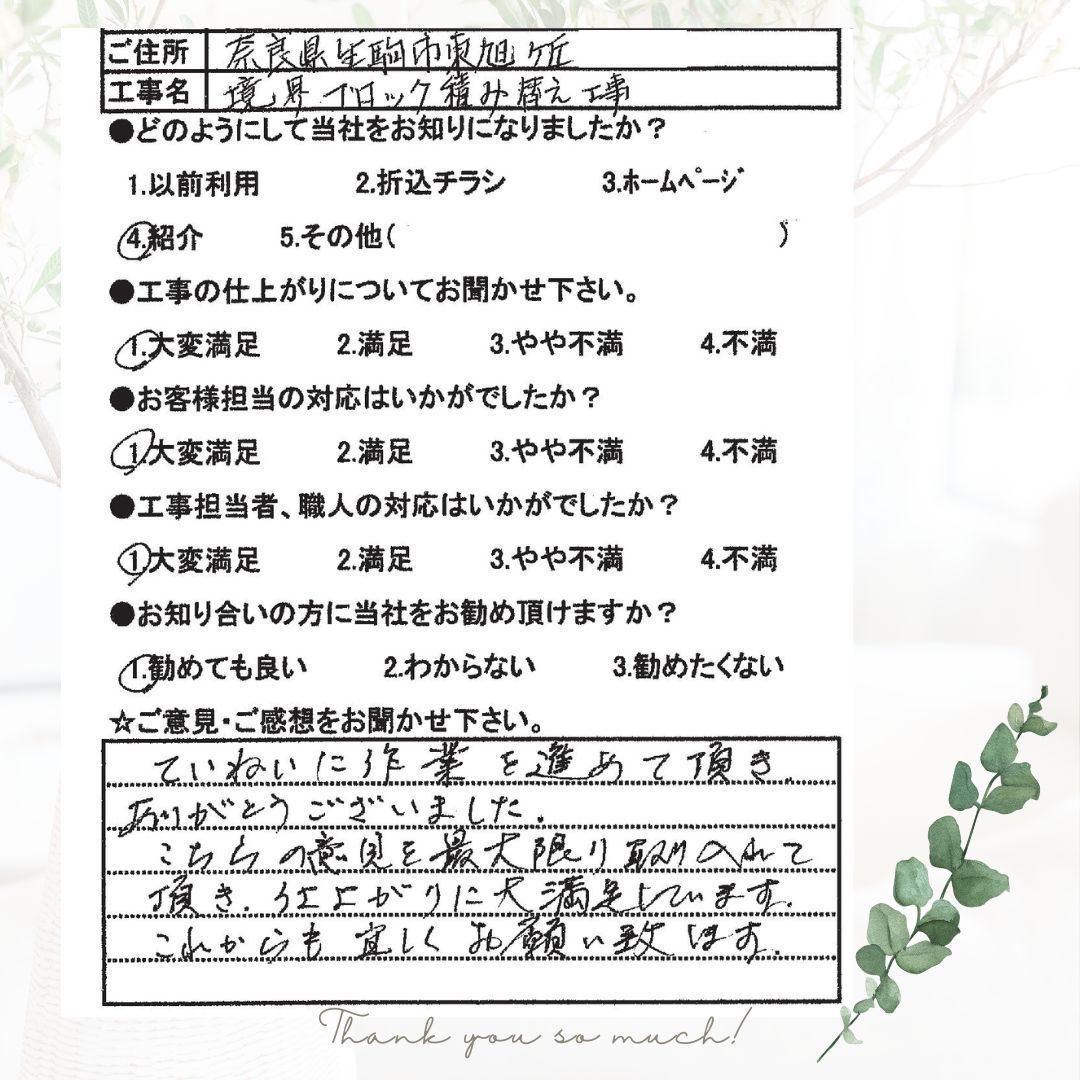 ご住所 奈良県生駒市東旭ケ丘
工事名 境界ブロック積み替え工事
●どのようにして当社をお知りになりましたか？
1.以前利用 2.折込チラシ 3.ホームページ
4.紹介 5.その他( )
●工事の仕上がりについてお聞かせ下さい。
1.大変満足 2.満足 3.やや不満 4.不満
●お客様担当の対応はいかがでしたか？
1.大変満足 2.満足 3.やや不満 4.不満
●工事担当者、職人の対応はいかがでしたか？
1.大変満足 2.満足 3.やや不満 4.不満
●お知り合いの方に当社をお勧め頂けますか？
1.勧めても良い 2.わからない 3.勧めたくない
☆ご意見・ご感想をお聞かせ下さい。
ていねいに作業を進めて頂き、
ありがとうございました。
こちらの意見を最大限り取り入れて
頂き、仕上がりに大満足しています。
これからも宜しくお願い致します。
Thank you so much!